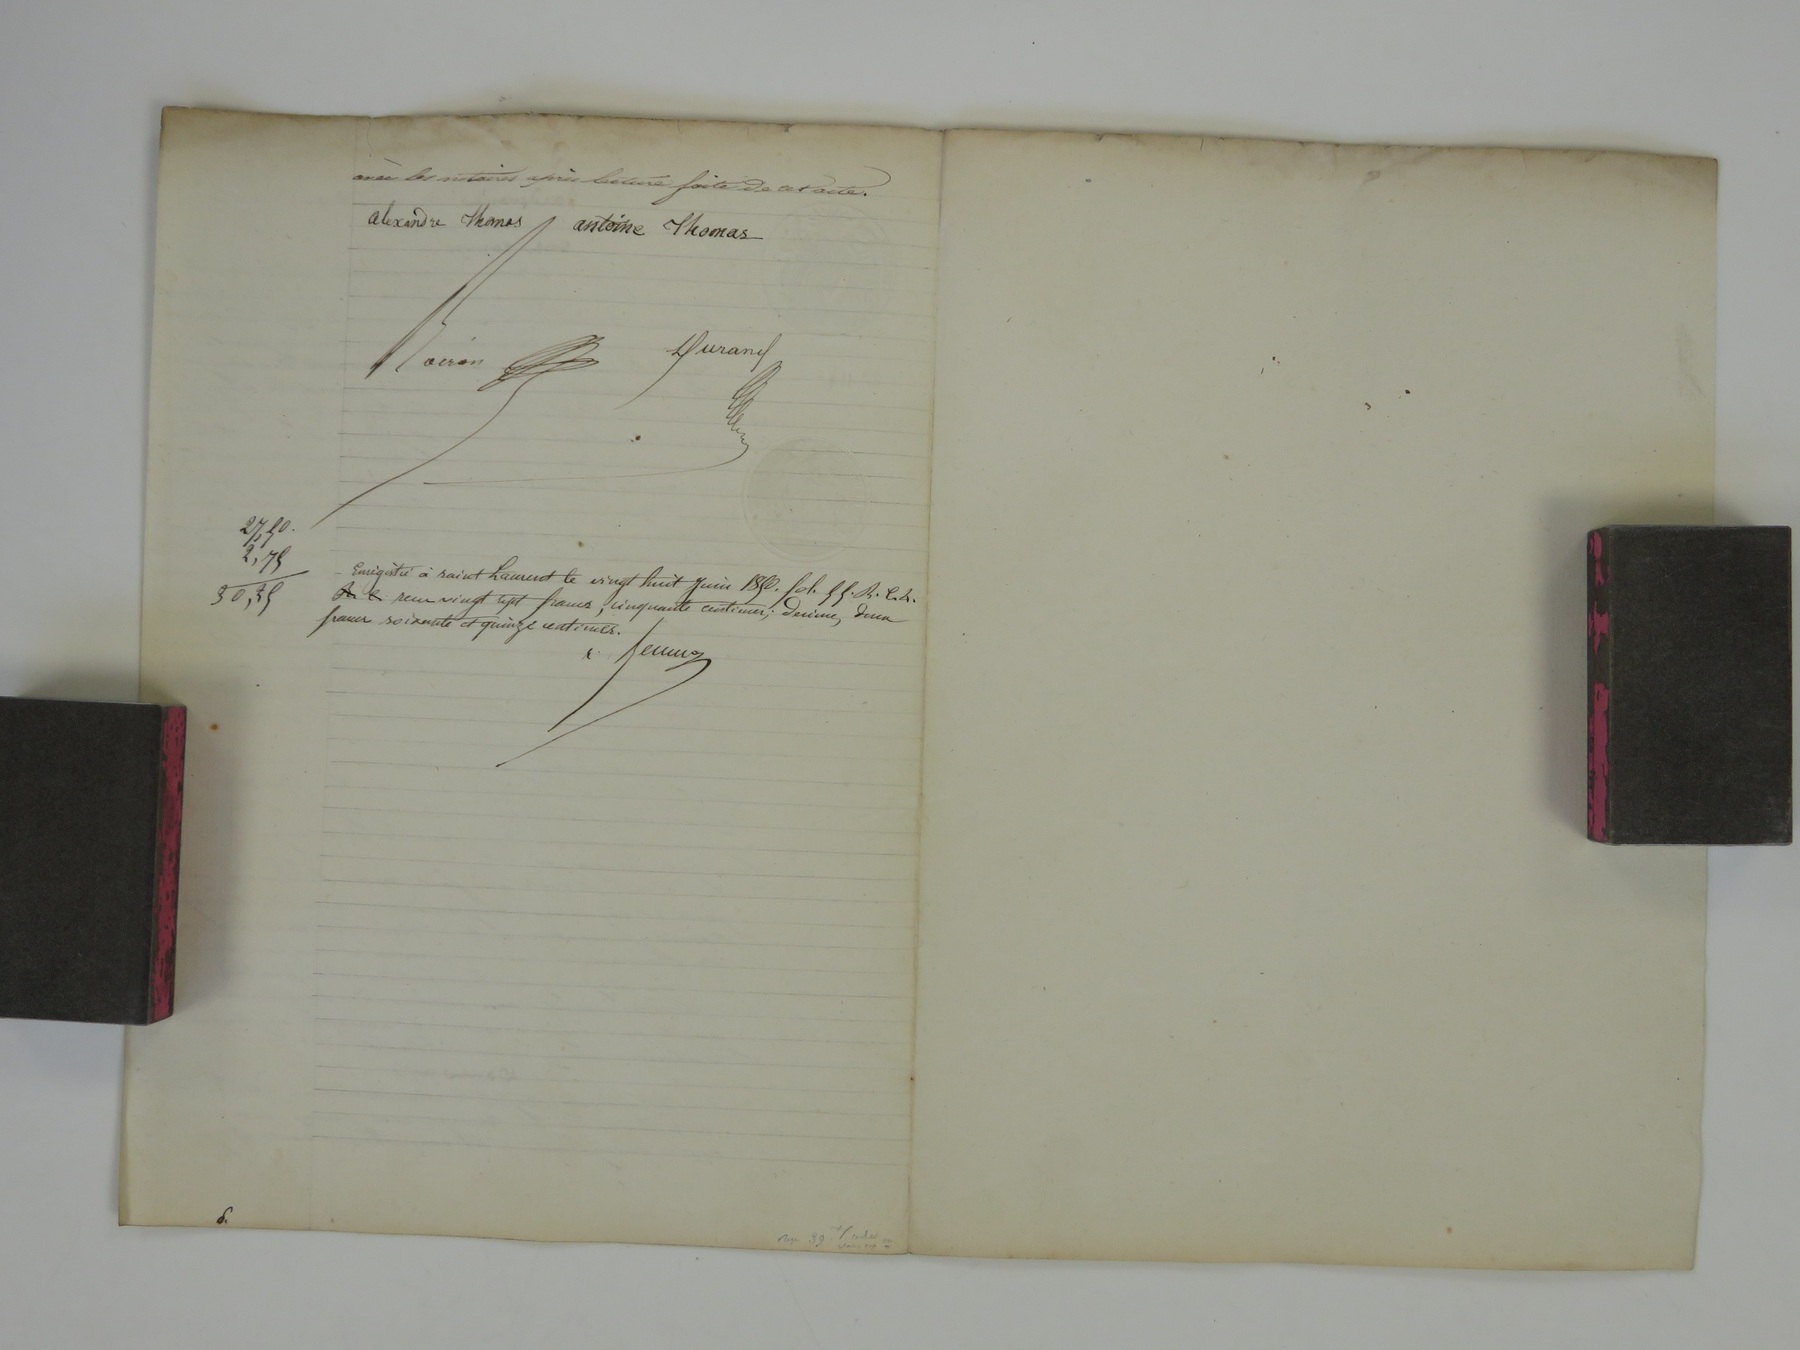 avec les notaires après lecture faite de cet acte.
alexandre Thomas antoine Thomas
Boiron Durand
27,50.
2,75
30,25
Enrigistré à saint Laurent le vingt huit Juin 1850. fol. 55. R. C. 4.
reçu vingt sept francs, cinquante centimes; decime, deux
francs soixante et quinze centimes.
6.
39